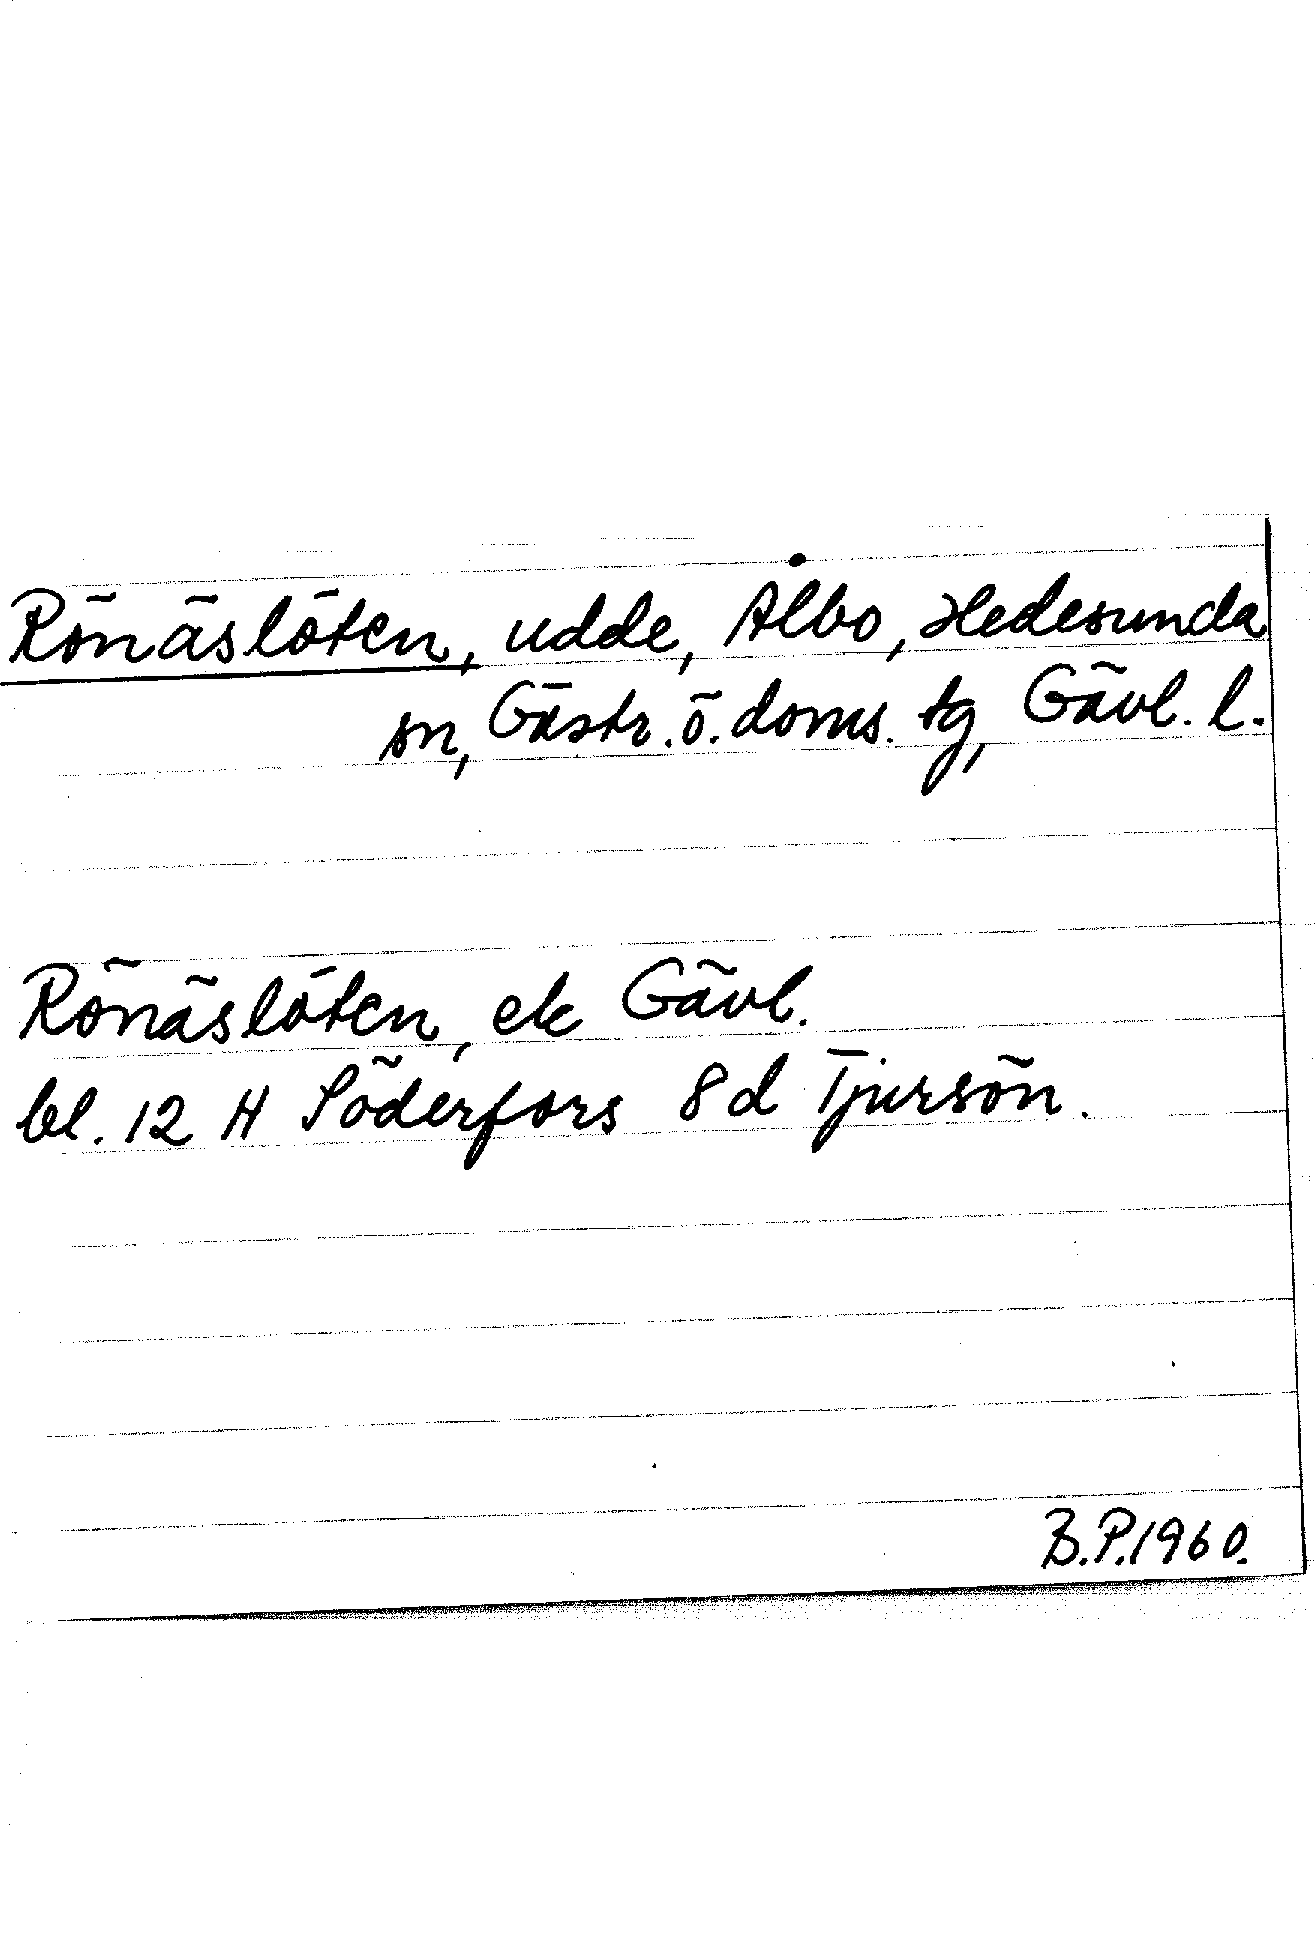 Rönäslöten, udde, Ålbo, Hedesunda
sn, Gästr. ö. doms. tg, Gävl. l.
Rönäslöten, ek Gävl.
bl. 12 H Söderfors 8d Tjursön.
B.P.1960.